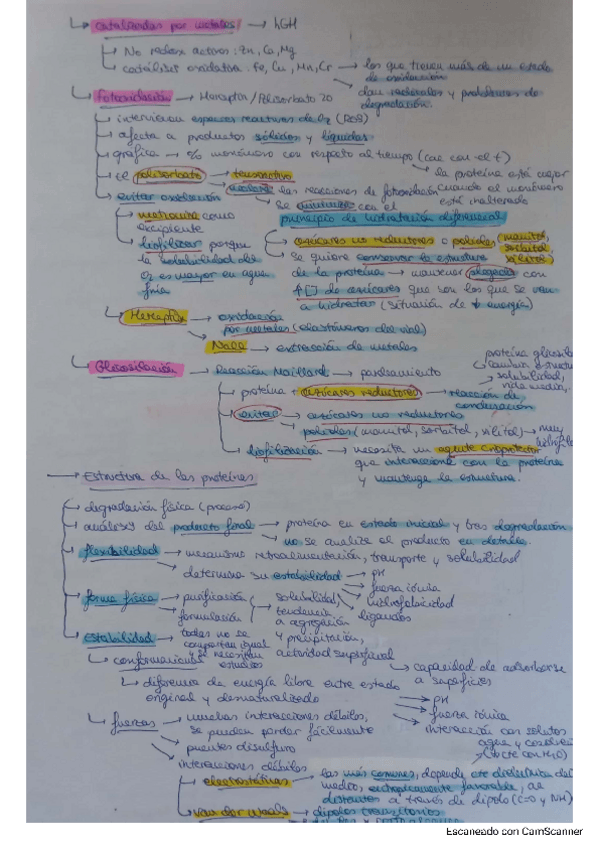 Catalizadas por metales → hGH
No redox activos: Zn, Ca, Mg
catálisis oxidativa: Fe, Cu, Mn, Cr → los que tienen más de un estado
de oxidación
dan radicales y problemas de
degradación.
Fotooxidación → Herceptin / Polisorbato 20
intervienen especies reactivas de O2 (ROS)
afecta a productos sólidos y líquidos
gráfica → % monómero con respecto al tiempo (cae con el t)
la proteína está mejor
cuando el monómero
está inalterado
el polisorbato → tensoactivo
acelera las reacciones de fotooxidación
evitar oxidación
se con el
principio de hidratación diferencial
metionina como
excipiente
liofilizar porque
la solubilidad del
O2 es mayor en agua
fría
azúcares no reductores o polioles (manitol,
sorbitol
xilitol)
se quiere conservar la estructura
de la proteína → mantener plegada con
↑[ ] de azúcares que son los que se van
a hidratar (situación de ↓ energía)
Herceptin → oxidación
por metales (elastómeros del vial)
NaCl → extracción de metales
Glicosilación → Reacción Maillard → pardeamiento
proteína
cambia estructura
solubilidad,
vida media,
proteína + azúcares reductores → reacción de
condensación
evitar → azúcares no reductores
polioles (manitol, sorbitol, xilitol) → muy
liofilización → necesita un agente crioprotector
que interaccione con la proteína
y mantenga la estructura.
Estructura de las proteínas
degradación física (proceso)
análisis del producto final → proteína en estado inicial y tras degradación
no se analiza el producto en detalle.
flexibilidad → mecanismos retroalimentación, transporte y solubilidad
determina su estabilidad → pH
fuerza iónica
hidrofobicidad
ligandos
forma física → purificación
formulación
solubilidad,
tendencia
a agregación
y precipitación,
actividad superficial
capacidad de adsorberse
a superficies
estabilidad → todas no se
comportan igual
y se necesitan
estudios
conformacional
diferencia de energía libre entre estado
original y desnaturalizado
pH
fuerza iónica
interacción con solutos
agua y
fuerzas → muchas interacciones débiles,
se pueden perder fácilmente
puentes disulfuro
interacciones débiles
electrostáticas → las más comunes, depende cte dieléctrica del
medio, entrópicamente favorable,
distantes a través de dipolo (C=O y NH)
van der Waals → dipolos transitorios
Escaneado con CamScanner